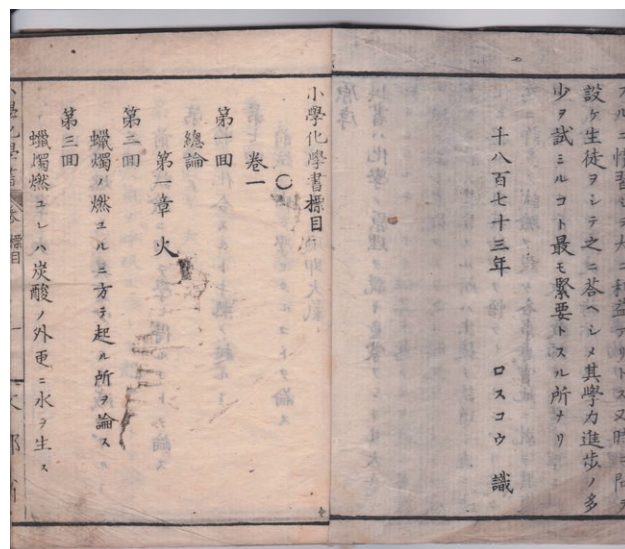 スルニ慣習シテ大ニ利益アリトス又時ニ問ヲ
設ケ生徒ヲシテ之ニ答ヘシメ其學力進歩ノ多
少ヲ試ミルコト最モ緊要トスル所ナリ
千八百七十三年 ロスコウ 識
小學化學書標目
○
卷一
第一回
總論
第一章 火
第二回
蠟燭ノ燃ユルニ方テ起ル所ヲ論ス
第三回
蠟燭燃ユレハ炭酸ノ外更ニ水ヲ生ス
小學化學書 卷一 標目
一
文部省